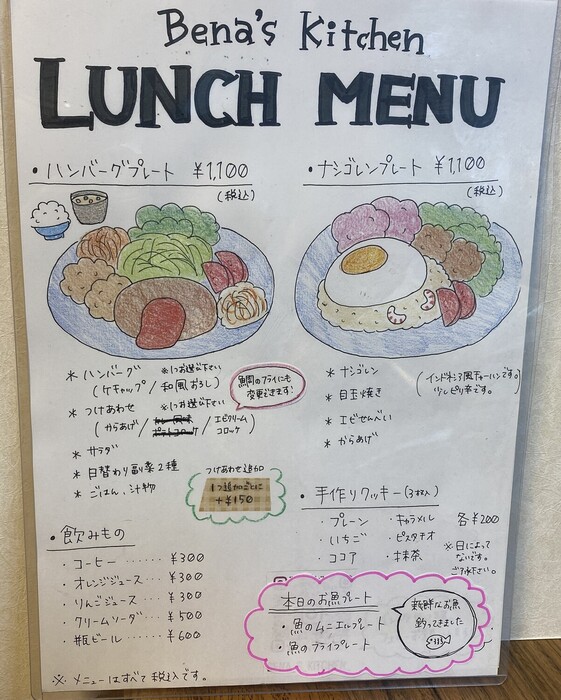 Bena's Kitchen
LUNCH MENU
・ハンバーグプレート ¥1,100
(税込)
・ナシゴレンプレート ¥1,100
(税込)
* ハンバーグ ※1つお選び下さい
(ケチャップ/和風おろし)
鯛のフライにも
変更できます!
* つけあわせ ※1つお選び下さい
(からあげ/ポテトコロッケ/エビクリーム
コロッケ)
* サラダ
* 日替わり副菜2種
* ごはん、汁物
つけあわせ追加
1つ追加ごとに
+¥150
* ナシゴレン
(インドネシア風チャーハンです。
少しピリ辛です。)
* 目玉焼き
* エビせんべい
* からあげ
・手作りクッキー(3枚入)
・プレーン ・キャラメル 各¥200
・いちご ・ピスタチオ
・ココア ・抹茶
※日によって
ないです。
ご了承下さい。
・飲みもの
・コーヒー……¥300
・オレンジジュース…¥300
・りんごジュース…¥300
・クリームソーダ…¥500
・瓶ビール……¥600
本日のお魚プレート
・魚のムニエルプレート
・魚のフライプレート
新鮮なお魚
釣ってきました
※メニューはすべて税込です。